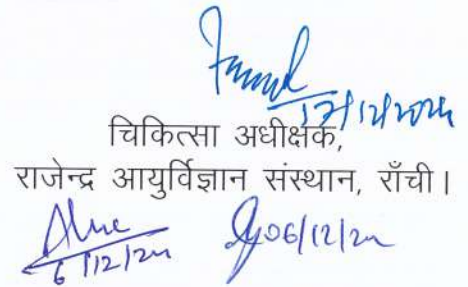 17/12/2024
चिकित्सा अधीक्षक,
राजेन्द्र आयुर्विज्ञान संस्थान, राँची।
6/12/24 06/12/24